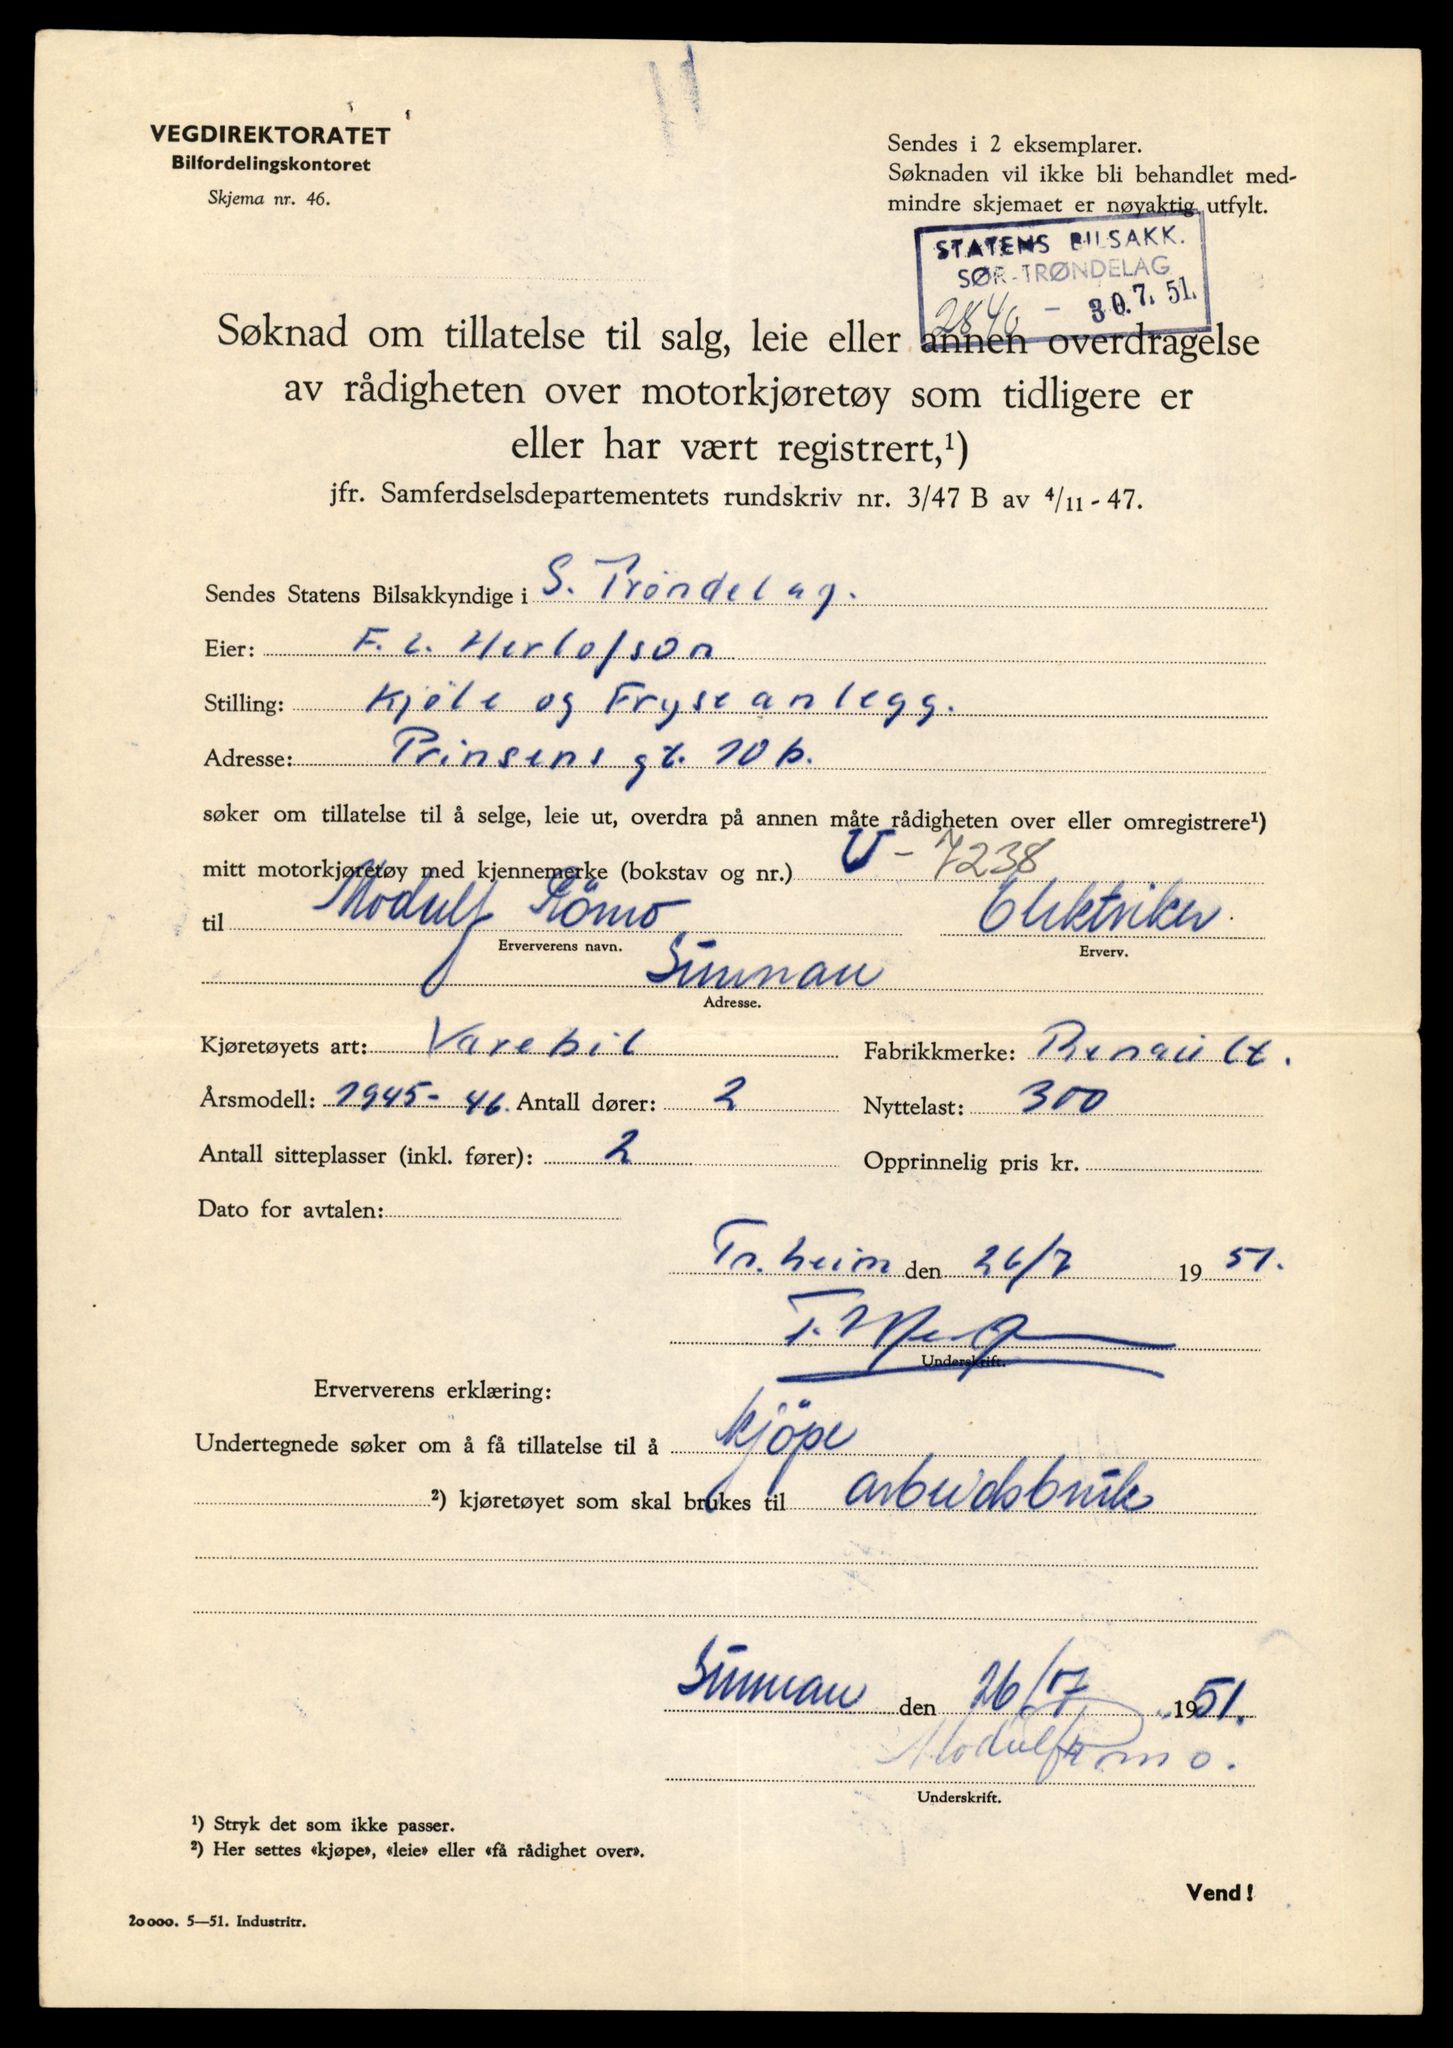 VEGDIREKTORATET
Bilfordelingskontoret
Skjema nr. 46.
Sendes i 2 eksemplarer.
Søknaden vil ikke bli behandlet med-
mindre skjemaet er nøyaktig utfylt.
STATENS BILSAKK.
SØR-TRØNDELAG
2840 - 30.7.51.
Søknad om tillatelse til salg, leie eller annen overdragelse
av rådigheten over motorkjøretøy som tidligere er
eller har vært registrert,¹)
jfr. Samferdselsdepartementets rundskriv nr. 3/47 B av 4/11 - 47.
Sendes Statens Bilsakkyndige i S. Trøndelag.
Eier: F. L. Herlofson
Stilling: Kjøle og Fryseanlegg.
Adresse: Prinsens gt. 10 b.
søker om tillatelse til å selge, leie ut, overdra på annen måte rådigheten over eller omregistrere¹)
mitt motorkjøretøy med kjennemerke (bokstav og nr.) U - 7238
til Modulf Römo Elektriker
Erververens navn. Erverv.
Sunnan
Adresse.
Kjøretøyets art: Varebil Fabrikkmerke: Renault.
Årsmodell: 1945-46. Antall dører: 2 Nyttelast: 300
Antall sitteplasser (inkl. fører): 2 Opprinnelig pris kr.
Dato for avtalen:
Tr.heim den 26/7 1951.
Underskrift.
Erververens erklæring:
Undertegnede søker om å få tillatelse til å kjöpe
²) kjøretøyet som skal brukes til arbeidsbruk
Sunnan den 26/7 1951.
Modulf Römo.
Underskrift.
¹) Stryk det som ikke passer.
²) Her settes «kjøpe», «leie» eller «få rådighet over».
Vend!
20 000. 5—51. Industritr.